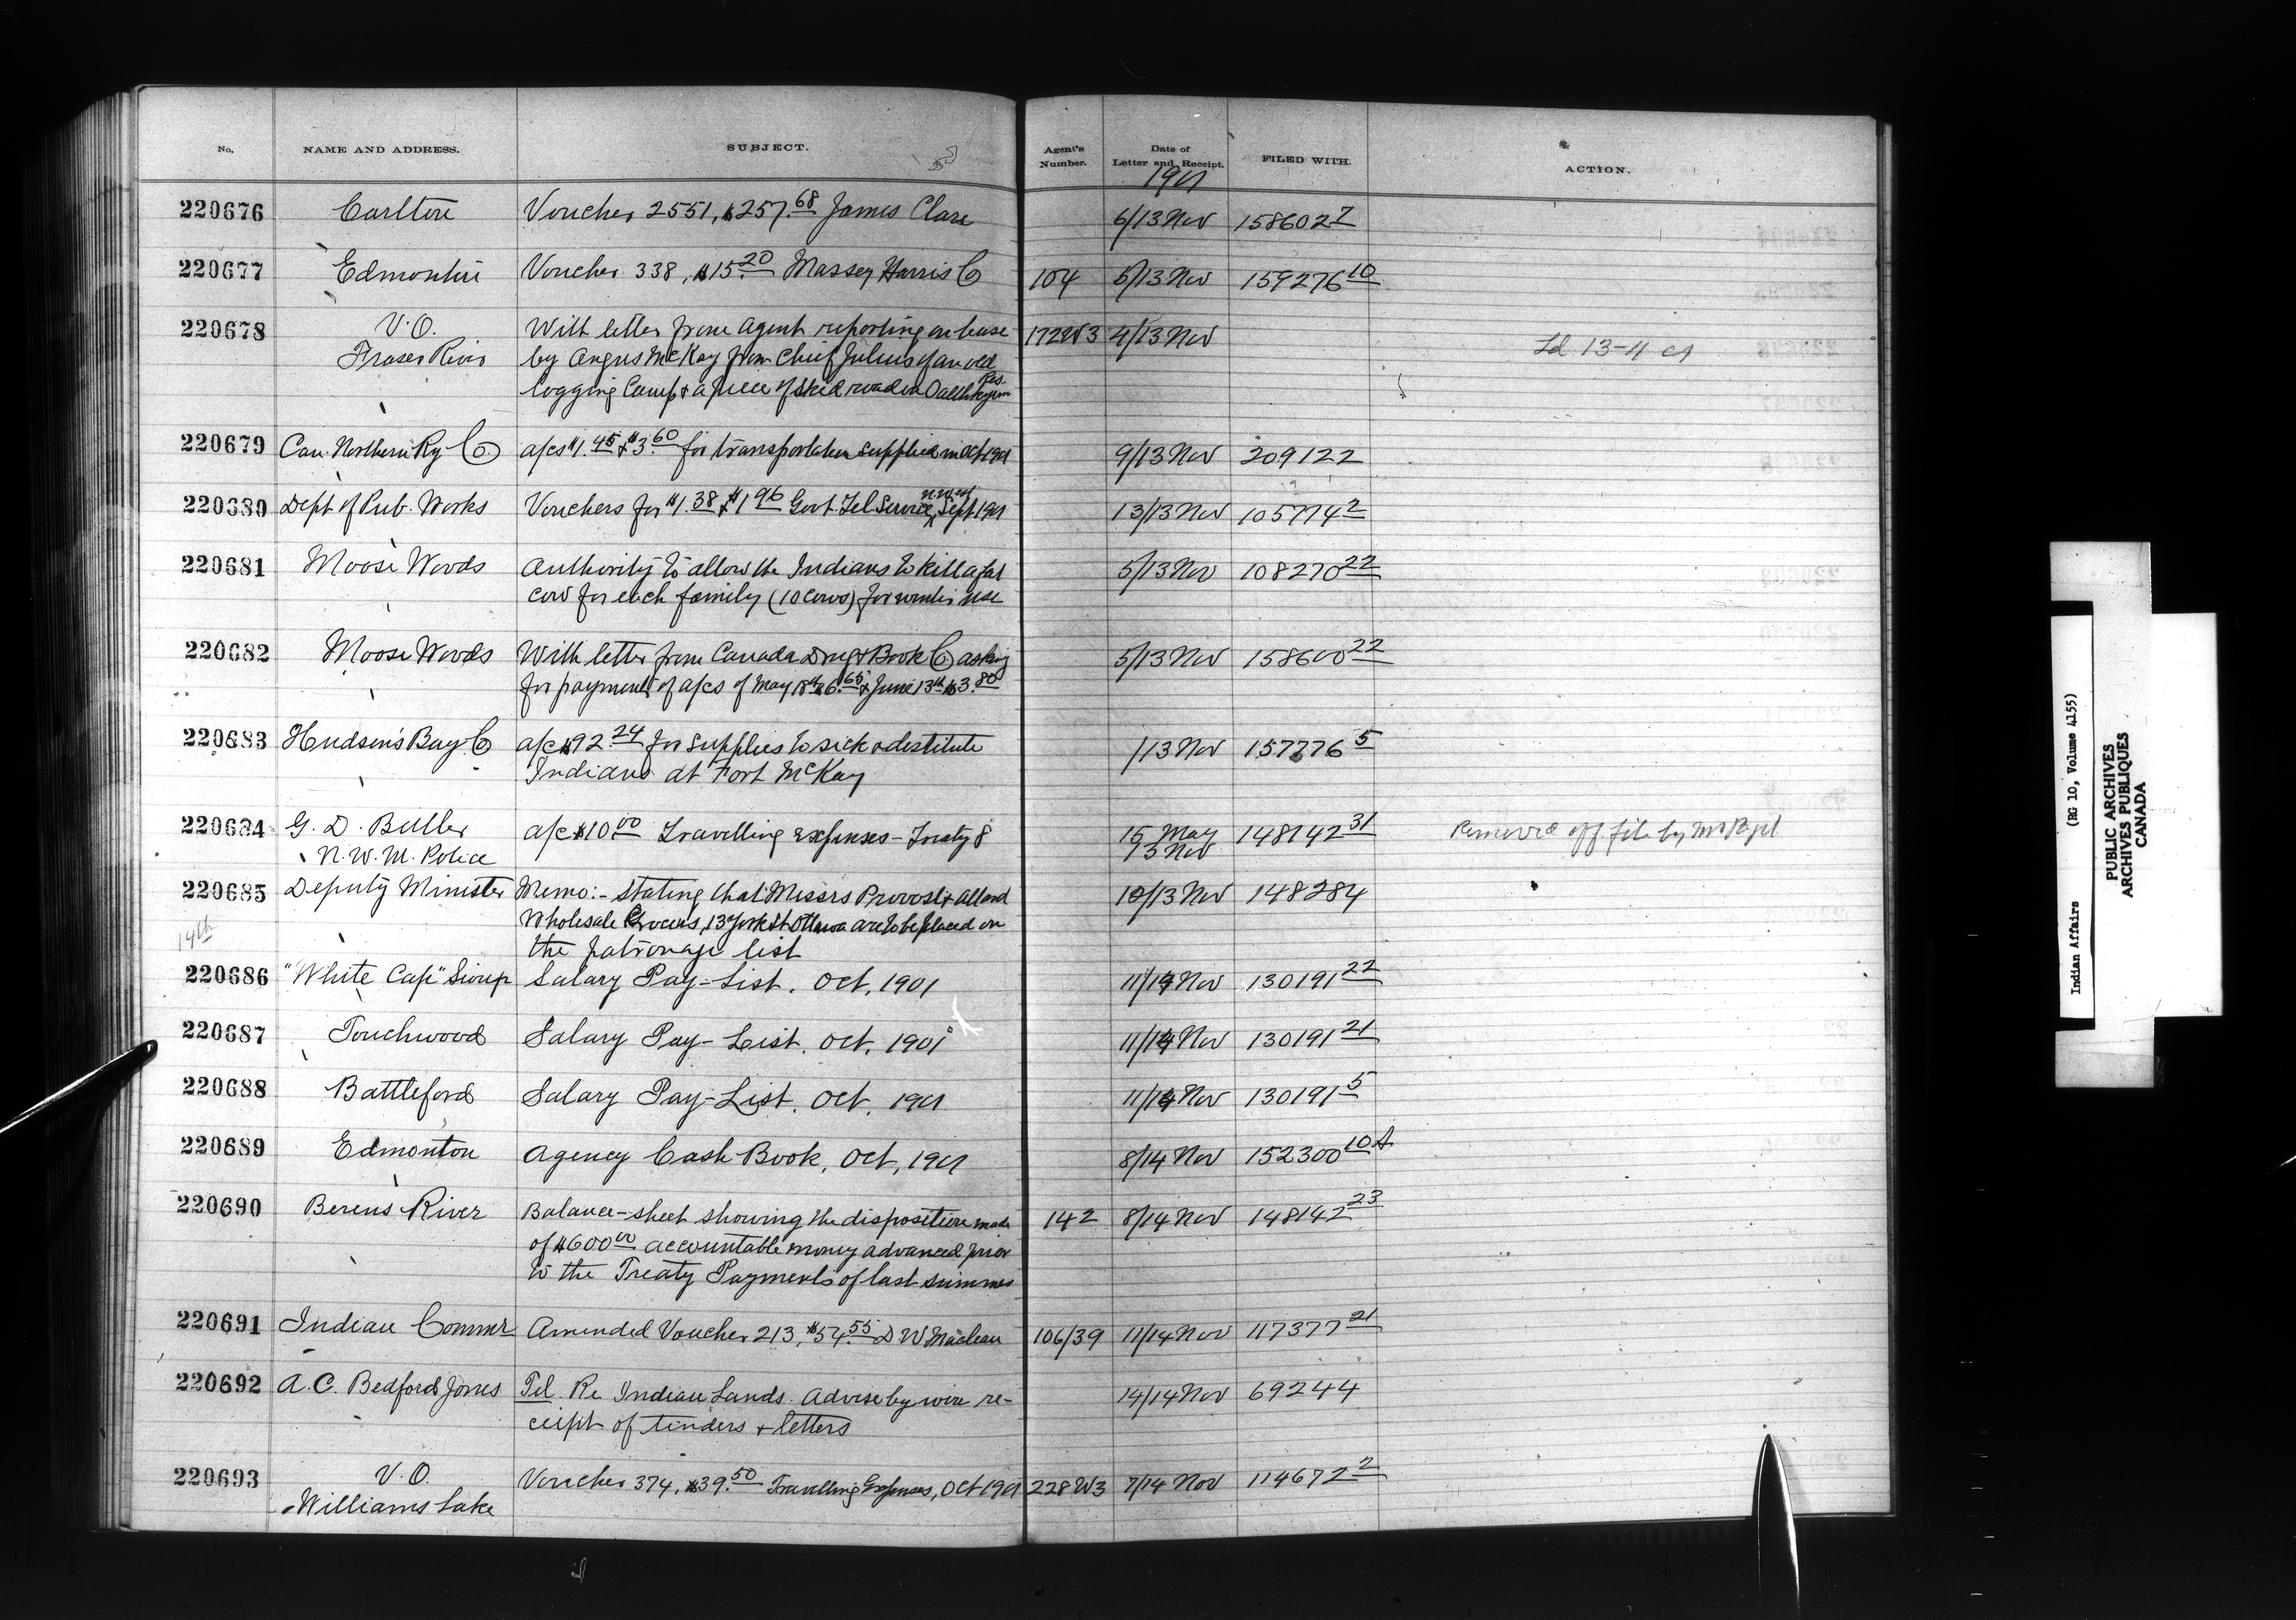 No. NAME AND ADDRESS. SUBJECT. Agent's Number. Date of Letter and Receipt. FILED WITH. ACTION.
1901
220676 Carlton Voucher 2551, $257.68 James Clare 6/13 Nov 158602 7
220677 Edmonton Voucher 338, $15.20 Massey Harris Co 104 5/13 Nov 159276 10
220678 V.O. With letter from Agent reporting on lease 172W3 4/13 Nov
Fraser River by Angus McKay from Chief Julius of an old Ld 13-4
logging Camp & a piece of skid road on Res.
220679 Can. Northern Ry Co a/cs $1.45 & $3.60 for transportation supplied in Oct 1901 9/13 Nov 209122
220680 Dept of Pub. Works Vouchers for $1.38 & $1.96 Govt. Tel Service, N. West Sept 1901 13/13 Nov 105774 2
220681 Moose Woods Authority to allow the Indians to kill a fat 5/13 Nov 108270 22
cow for each family (10 cows) for winter use
220682 Moose Woods With letter from Canada Drug & Book Co asking 5/13 Nov 158600 22
for payment of a/cs of May 18th $6.65 & June 13th $3.80
220683 Hudson's Bay Co a/c $92.24 for supplies to sick & destitute 1/13 Nov 157776 5
Indians at Fort McKay
220684 G. D. Butler a/c $10.00 Travelling expenses - Treaty 8 15 May 148142 31 Removed off file by
N.W.M. Police 13 Nov
220685 Deputy Minister Memo:- stating that Messrs Provost & Allard 10/13 Nov 148284
14th Wholesale Grocers, 13 York St Ottawa are to be placed on
the patronage list
220686 "White Cap" Sioux Salary Pay-List. Oct. 1901 11/14 Nov 130191 22
220687 Touchwood Salary Pay-List. Oct. 1901 11/14 Nov 130191 21
220688 Battleford Salary Pay-List. Oct. 1901 11/14 Nov 130191 5
220689 Edmonton Agency Cash Book, Oct, 1901 8/14 Nov 152300 10A
220690 Berens River Balance-sheet showing the disposition made 142 8/14 Nov 148142 23
of $600.00 accountable money advanced prior
to the Treaty Payments of last summer
220691 Indian Commr Amended Voucher 213, $54.55 D W Maclean 106/39 11/14 Nov 117377 21
220692 A. C. Bedford Jones Tel. Re Indian Lands. Advise by wire re- 14/14 Nov 69244
ceipt of tenders & letters
220693 V.O. Voucher 374, $39.50 Travelling Expenses, Oct 1901 228W3 7/14 Nov 114672 2
Williams Lake
Indian Affairs (RG 10, Volume 4155)
PUBLIC ARCHIVES
ARCHIVES PUBLIQUES
CANADA